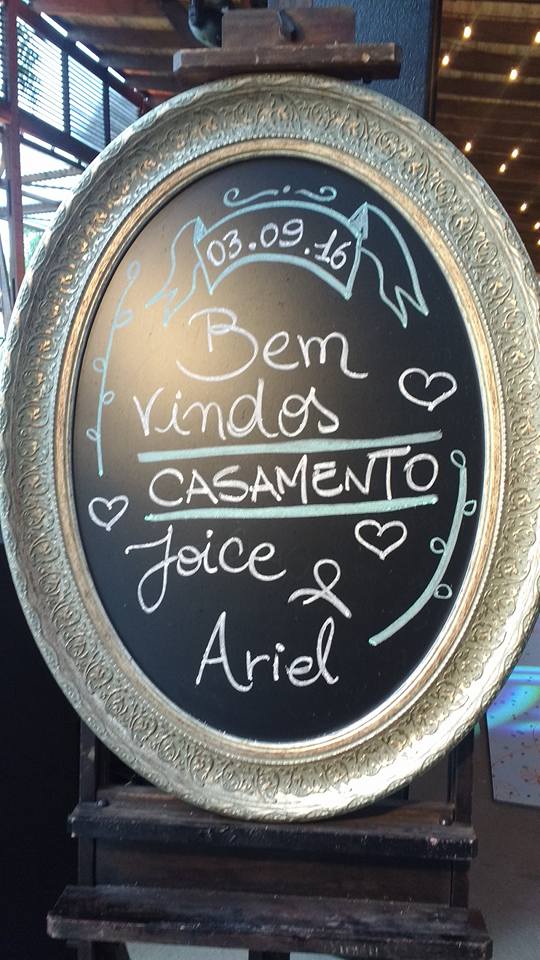 03.09.16
Bem
vindos
CASAMENTO
Joice
&
Ariel